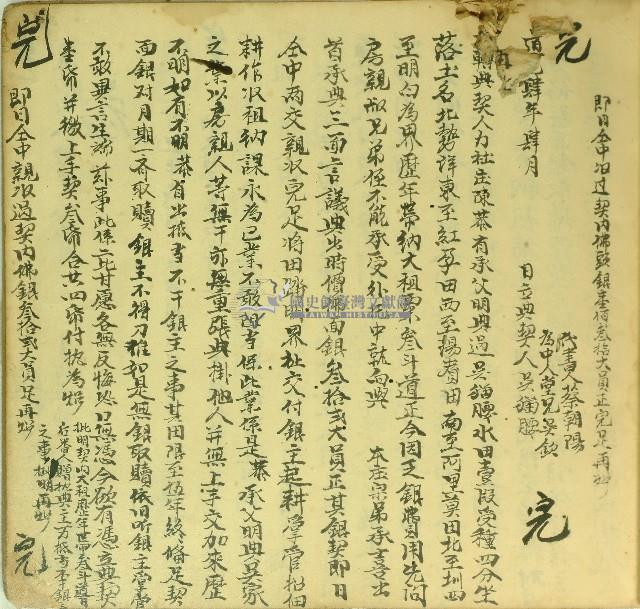 完
即日仝中□過契內佛銀壹佰叁拾大員正完足再炤
代書人蔡朝陽
為中人堂兄吳欽
日立典契人吳貓腰
完
道光肆年肆月
轉典契人力社庄陳恭有承父明典過吳貓腰水田壹段受種四分坐
落土名北勢洋東至紅孕田西至揚者田南至阿里莫田北至圳四
至明白為界歷年帶納大租粟叁斗道正今因乏銀費用先問
房親叔兄弟侄不能承受外托中就向與 本庄宗弟承士善出
首承典三面言議典出時價佛面銀叁拾弍大員正其銀契即日
仝中兩交親收完足將田踏明界址交付銀主起耕掌管招佃
耕作收租納課永為己業不敢阻當保此業係是恭承父明典吳家
之業與房親人等無干亦無重張典掛他人并無上手交加來歷
不明如有不明恭自出抵當不干銀主之事其田限至伍年終備足契
面銀对月期一齊取贖銀主不得刁難如是無銀取贖依旧听銀主掌管
不敢異言生端訟事此係二比甘愿各無反悔恐口無憑今欲有憑立典契
壹帋并繳上手契叁帋合共四帋付执為炤
即日仝中親收過契內佛銀叁拾弍大員足再炤
批明契內大租歷年帶叁斗道日
之事批明再炤
完
完
國史館臺灣文獻館
TAIWAN HISTORICA